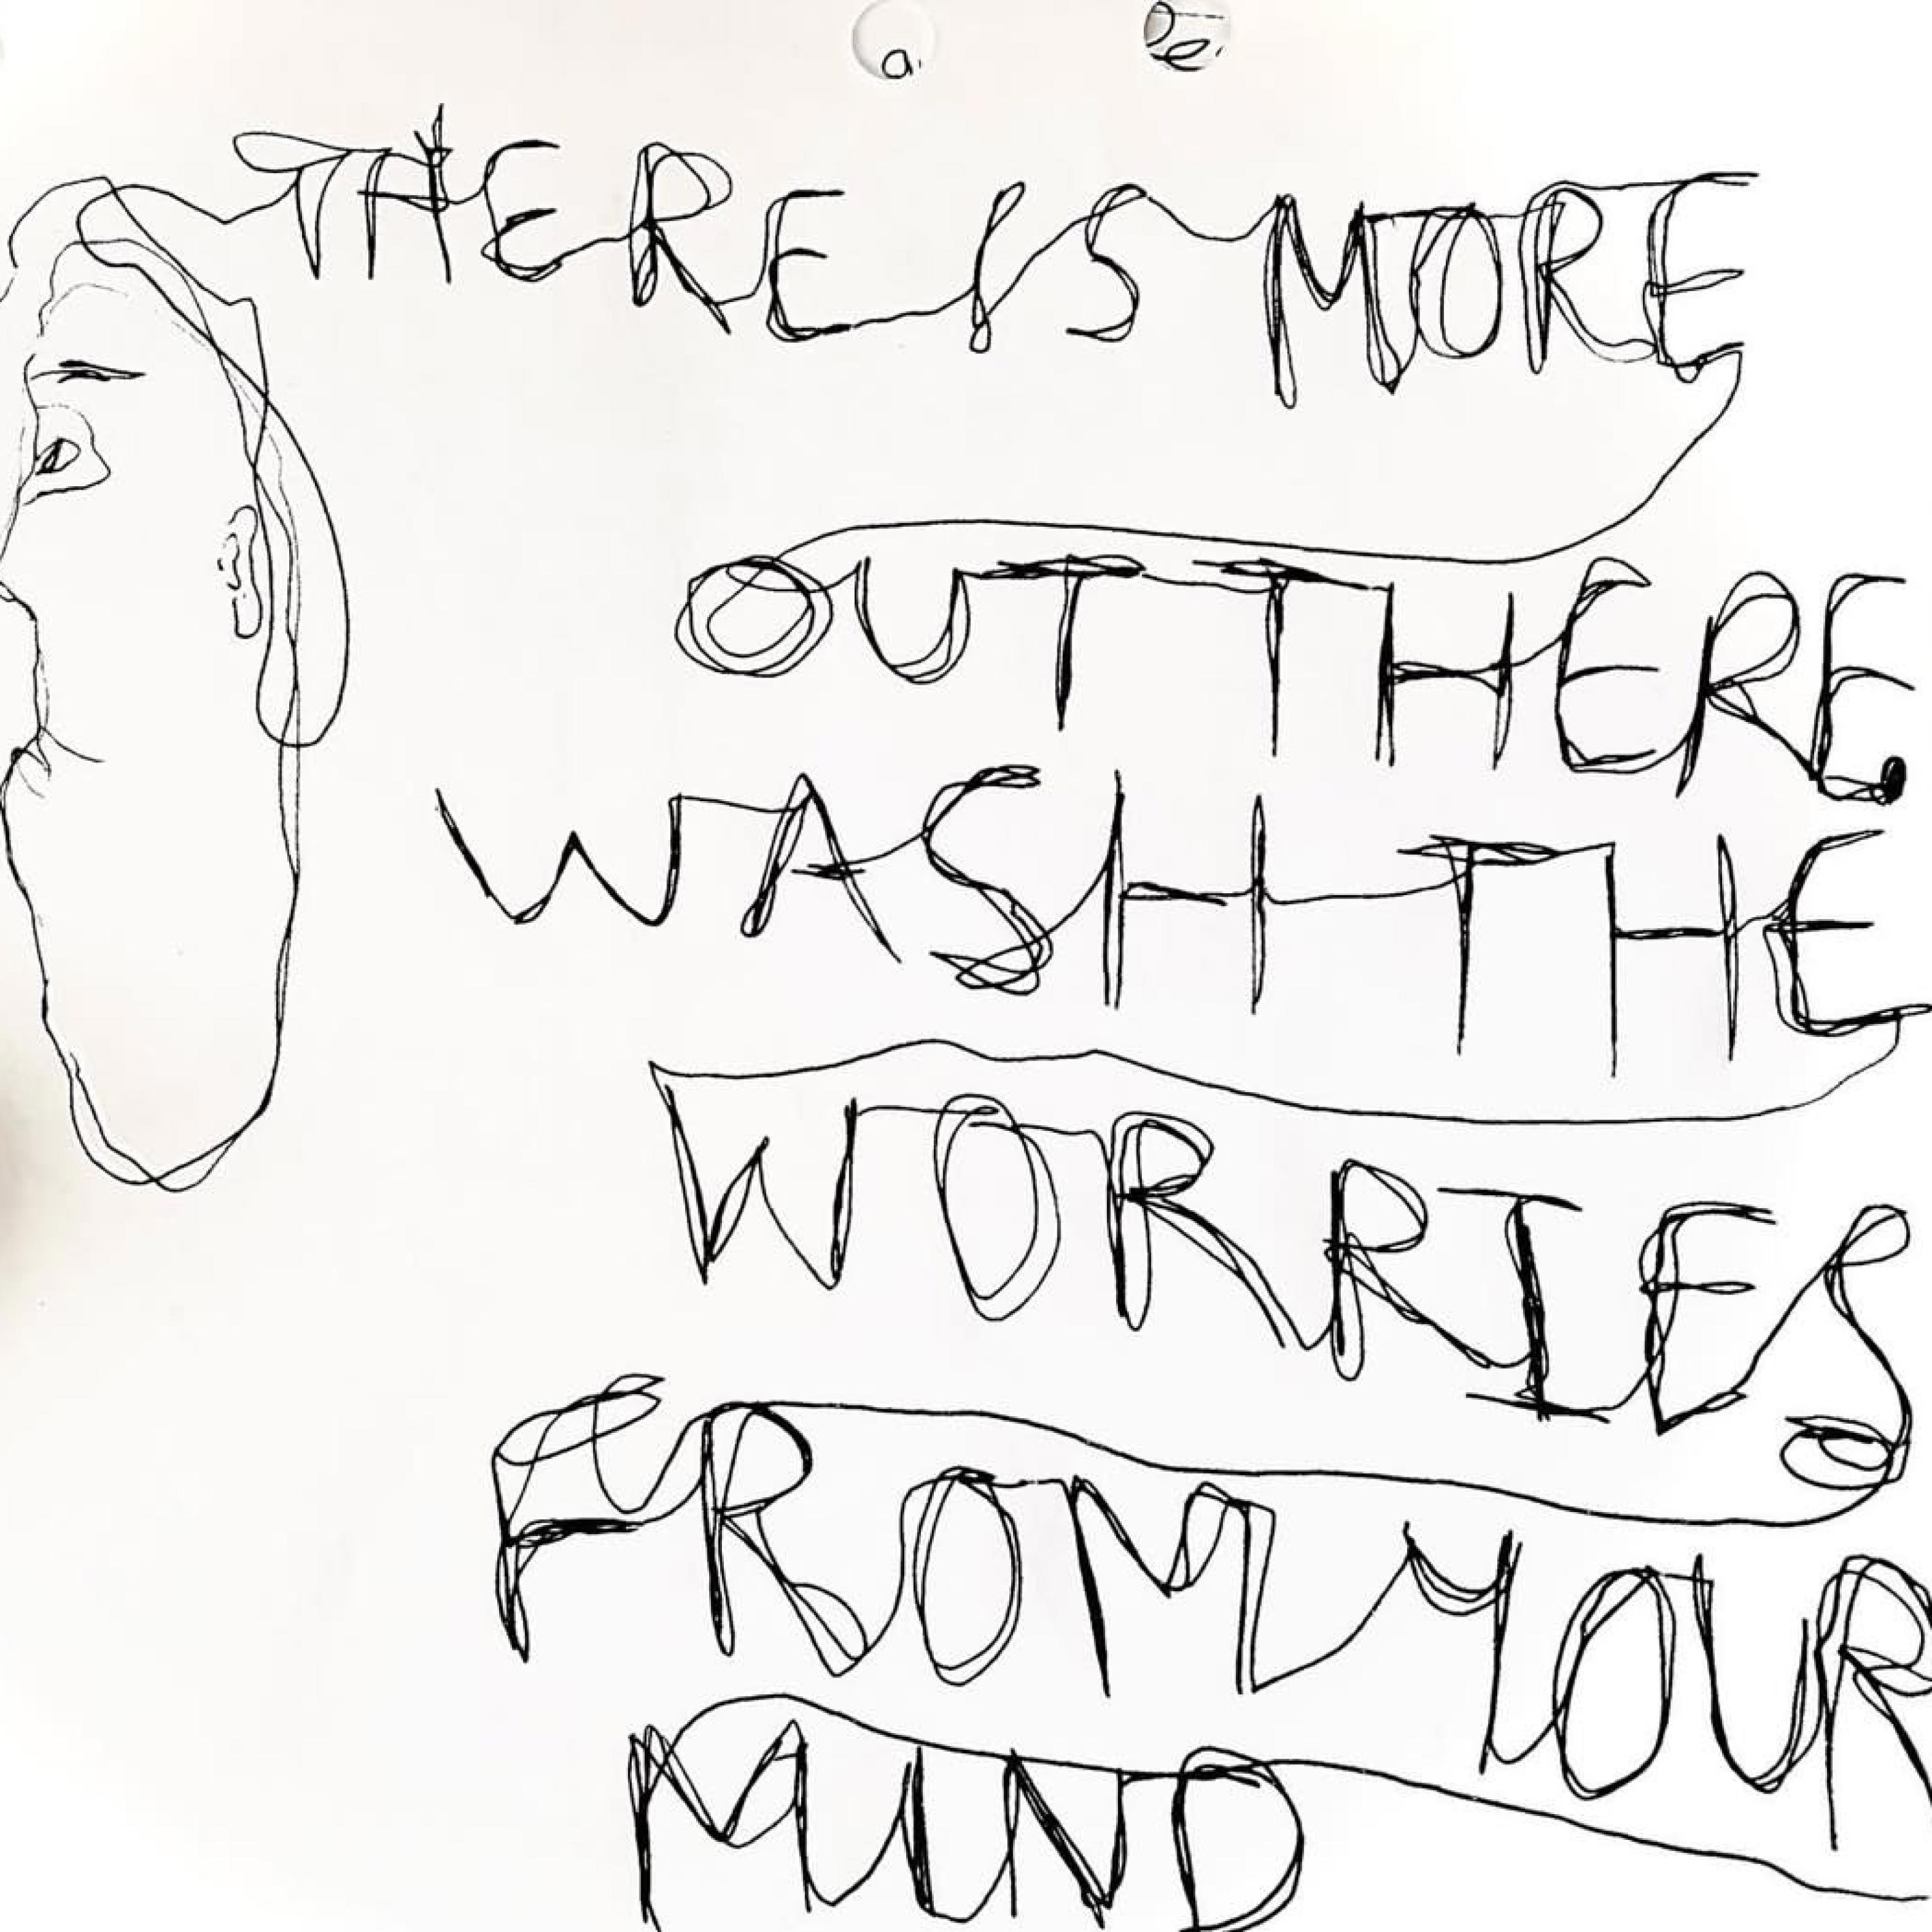 THERE IS MORE
OUT THERE.
WASH THE
WORRIES
FROM YOUR
MIND